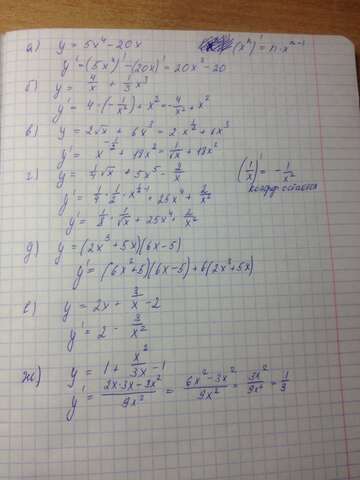 а) y = 5x⁴ - 20x (xⁿ)' = n·xⁿ⁻¹
y' = (5x⁴)' - (20x)' = 20x³ - 20
б) y = 4/x + 1/3 x³
y' = 4·(-1/x²) + x² = -4/x² + x²
в) y = 2√x + 6x³ = 2·x^(1/2) + 6x³
y' = x^(-1/2) + 18x² = 1/√x + 18x²
г) y = 1/4 √x + 5x⁵ - 2/x (1/x)' = -1/x²
коэфф остаётся
y' = 1/4 · 1/2 · x^(1/2-1) + 25x⁴ + 2/x²
y' = 1/8 · 1/√x + 25x⁴ + 2/x²
д) y = (2x³ + 5x)(6x - 5)
y' = (6x² + 5)(6x - 5) + 6(2x³ + 5x)
е) y = 2x + 3/x - 2
y' = 2 - 3/x²
ж) y = 1 + x²/3x - 1
y' = (2x·3x - 3x²)/9x² = (6x² - 3x²)/9x² = 3x²/9x² = 1/3